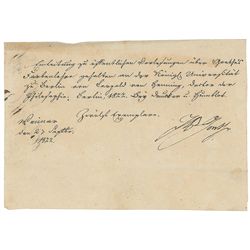 Einleitung zu öffentlichen Vorlesungen über Goethes
Farbenlehre gehalten an der Königl. Universität
zu Berlin von Leopold von Henning, Doctor der
Philosophie. Berlin, 1822. Bey Duncker u Humblot.
Zwölf Exemplare.
Weimar
den 27 Septbr.
1822.
JWGoethe